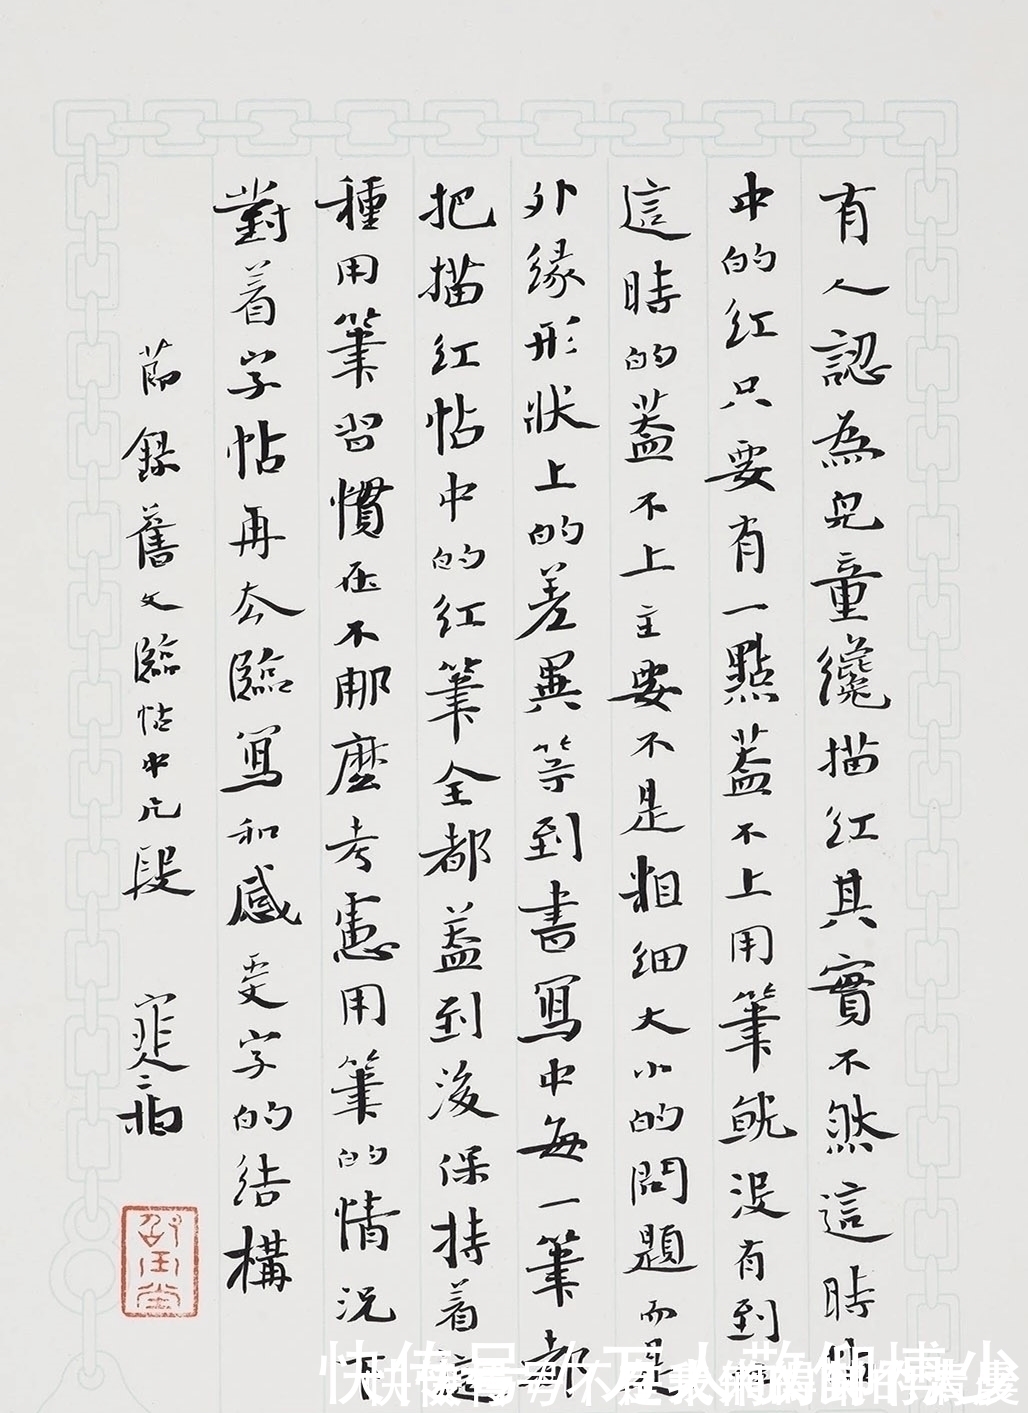 有人認為兒童纔描紅其實不然這時
中的紅只要有一點蓋不上用筆就没有到
這時的蓋不上主要不是粗細大小的問題而是
外緣形狀上的差異等到書寫中每一筆都
把描紅帖中的紅筆全都蓋到後保持着這
種用筆習慣在不那麽考慮用筆的情況下
對着字帖再去臨寫和感受字的結構
節録舊文臨帖中片段
快传号/万人敬仰博少